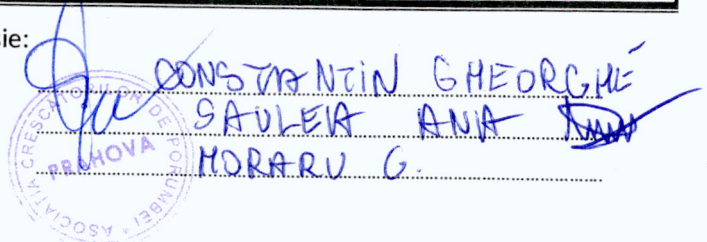 sie:
CONSTANTIN GHEORGHE
SAULEA ANA
MORARU G.
ASOCIATIA CRESCATORILOR DE PORUMBEI
PRAHOVA